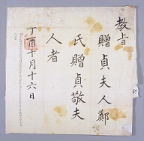 教旨
贈貞夫人鄭
氏贈貞敬夫
人者
丁酉十月十六日